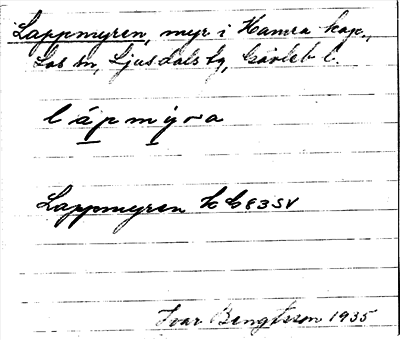 Lappmyren, myr i Hamra kap.,
Los sn, Ljusdals tg, Gävleb l.
lápmýra
Lappmyren
Ivar Bengtsson 1935